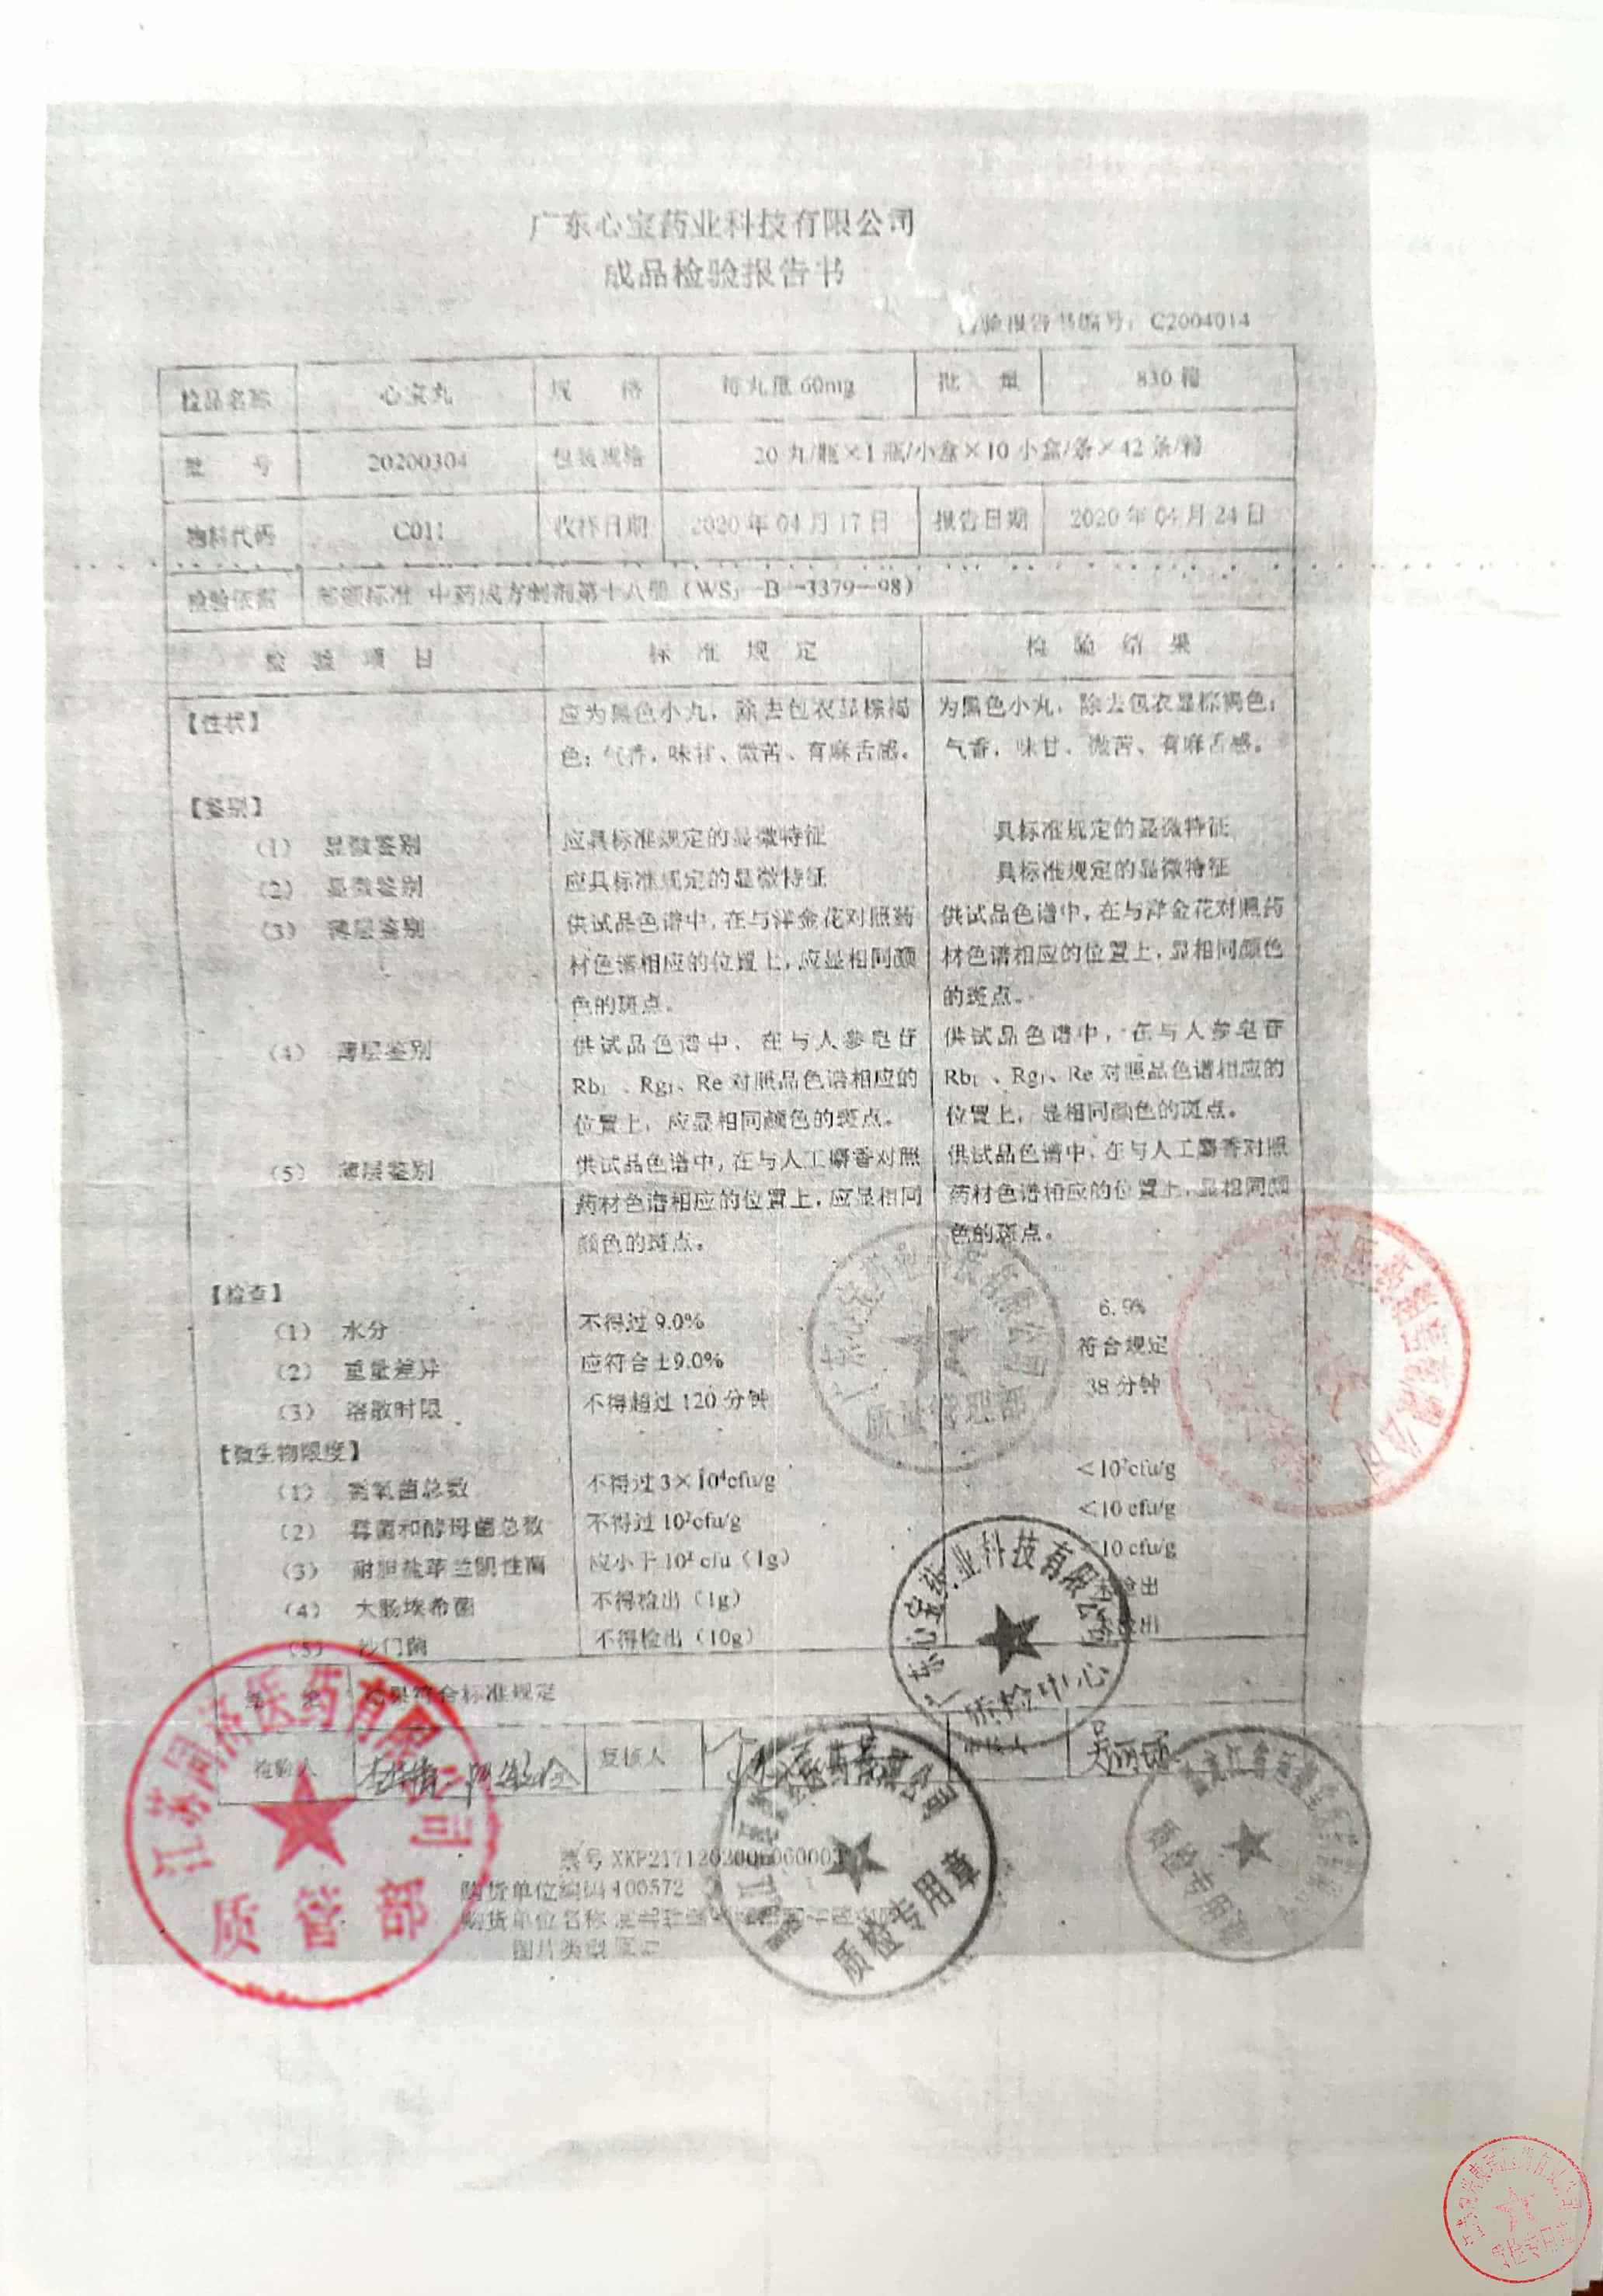 广东心宝药业科技有限公司
成品检验报告书
检验报告书编号：C2004014
检品名称 心宝丸 规 格 每丸重60mg 批 量 830箱
批 号 20200304 包装规格 20丸/瓶×1瓶/小盒×10小盒/条×42条/箱
物料代码 C011 收样日期 2020年04月17日 报告日期 2020年04月24日
检验依据 部颁标准 中药成方制剂第十八册（WS₃—B—3379—98）
检 验 项 目 标 准 规 定 检 验 结 果
【性状】 应为黑色小丸，除去包衣显棕褐 为黑色小丸，除去包衣显棕褐色；
色；气香，味甘、微苦、有麻舌感。 气香，味甘、微苦、有麻舌感。
【鉴别】
（1） 显微鉴别 应具标准规定的显微特征 具标准规定的显微特征
（2） 显微鉴别 应具标准规定的显微特征 具标准规定的显微特征
（3） 薄层鉴别 供试品色谱中，在与洋金花对照药 供试品色谱中，在与洋金花对照药
材色谱相应的位置上，应显相同颜 材色谱相应的位置上，显相同颜色
色的斑点。 的斑点。
（4） 薄层鉴别 供试品色谱中，在与人参皂苷 供试品色谱中，在与人参皂苷
Rb₁、Rg₁、Re对照品色谱相应的 Rb₁、Rg₁、Re对照品色谱相应的
位置上，应显相同颜色的斑点。 位置上，显相同颜色的斑点。
（5） 薄层鉴别 供试品色谱中，在与人工麝香对照 供试品色谱中，在与人工麝香对照
药材色谱相应的位置上，应显相同 药材色谱相应的位置上，显相同颜
颜色的斑点。 色的斑点。
【检查】
（1） 水分 不得过9.0% 6.9%
（2） 重量差异 应符合±9.0% 符合规定
（3） 溶散时限 不得超过120分钟 38分钟
【微生物限度】
（1） 需氧菌总数 不得过3×10⁴cfu/g <10²cfu/g
（2） 霉菌和酵母菌总数 不得过10²cfu/g <10 cfu/g
（3） 耐胆盐革兰阴性菌 应小于10² cfu（1g） 10 cfu/g
（4） 大肠埃希菌 不得检出（1g） 未检出
（5） 沙门菌 不得检出（10g） 未检出
结 论 结果符合标准规定
检验人 复核人 吴丽
广东心宝药业科技有限公司
质量管理部
广东心宝药业科技有限公司
质检中心
江苏同济医药有限公司
质管部
质检专用章
质检专用章
票号 XKP2171202006060003
购货单位编码 400572
购货单位名称
图片类型
质检专用章